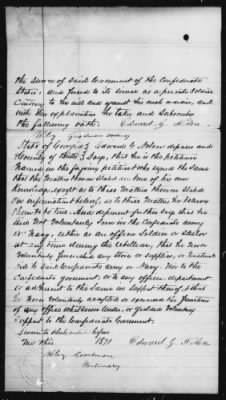 the service of said Government of the Confederate
States. And forced to its service as a private Soldier
to his will and against his wish or desire, and
with this explanation he takes and subscribes
the following oath. Edward G.
State of Georgia } Edward G. deposes and
County of Butts } says, that he is the petitioner
named in the foregoing petition who signed the same
that the matters therein stated are true of his own
knowledge, except as to those matters therein stated
on information & belief, as to those matters he believes
them to be true. And deponent further says that he
did not voluntarily serve in the Confederate army
or Navy, either as an officer Soldier or sailor
at any time during the rebellion, that he never
voluntarily furnished any stores or supplies, or
aid to said Confederate army or Navy. Nor to the
Confederate government, or to any officer, department
or adherent to the same in support thereof, & that
he never voluntarily accepted or exercised the functions
of any office whatsoever under, or yielded voluntary
support to the Confederate Government.
Sworn to & subscribed before
me this 1871 Edward G.
Wiley Goodman
Ordinary